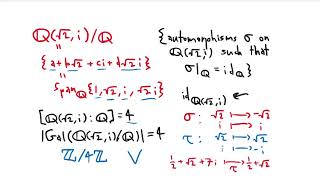 ℚ(√2, i)/ℚ
"
{a+b√2 + ci + d√2 i}
"
Span_ℚ {1, √2, i, √2 i}
[ℚ(√2, i) : ℚ] = 4
|Gal(ℚ(√2, i)/ℚ)| = 4
ℤ/4ℤ V
{automorphisms σ on
ℚ(√2, i) such that
σ|_ℚ = id_ℚ}
id_ℚ(√2, i) ←
σ: √2 ↦ -√2
i ↦ i
τ: √2 ↦ √2
i ↦ -i
½+√2+7i ↦ ½+√2
τ